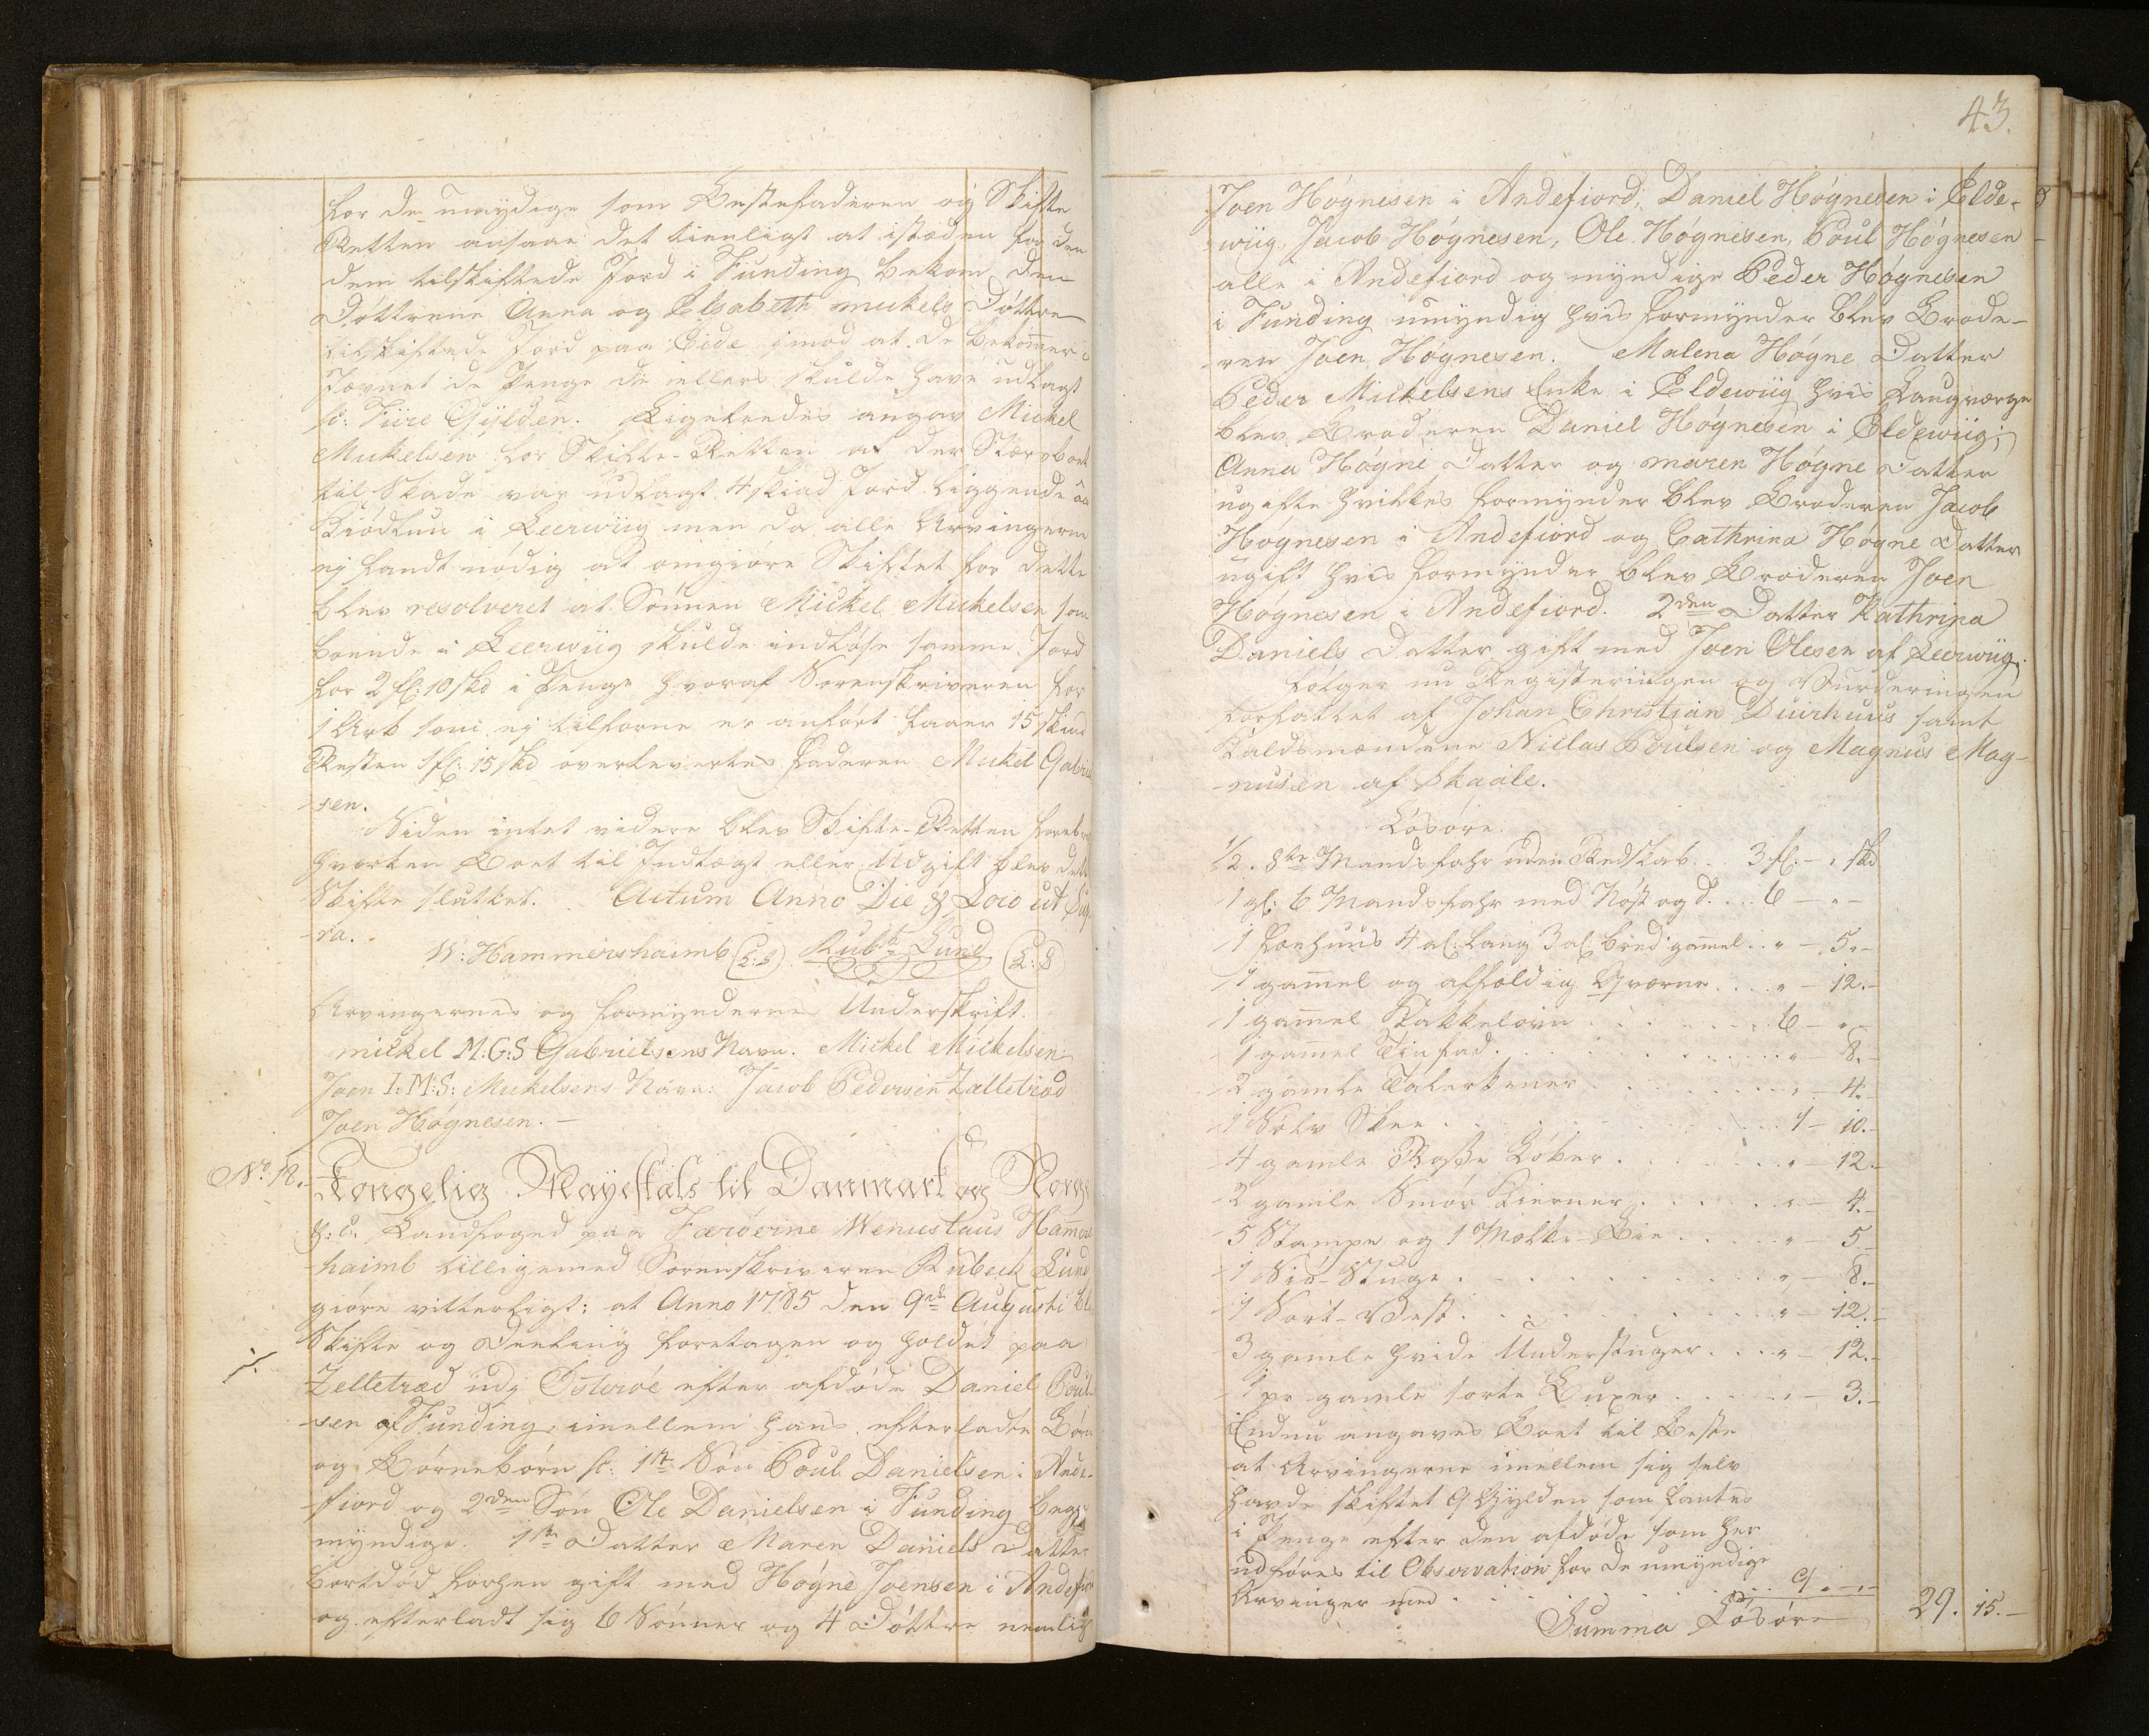 for de umyndige som Bestefaderen og Skifte
Retten ansaae det tienligst at isteden for den
dem tilskiftede Jord i Funding bekom den
Døttrene Anna og Elsabeth Mickels Døttre
tilskiftede Jord paa Eide imod at de bekommer
Jevnet de Penge de ellers skulde have udlagt
sc: Fiire Gylden. Ligeledes angav Mickel
Mickelsen for Skifte-Retten at der Stervboet
til Skade var udlagt 4 skind Jord liggende
i Leerwiig men da alle Arvingerne
ej fandt nødig at omgiøre Skiftet for dette
blev resolveret at Sønnen Mickel Mickelsen som
boende i Leerwiig skulde indløse samme Jord
for 2 fl: 10 skd i Penge hvoraf Sorenskriveren for
1 Ark som ej tilforne er anført faaer 15 skind
Resten 1 fl: 15 skd overlevertes faderen Mickel Gabriel
-sen.
Siden intet videre blev Skifte-Retten foreb
hverken Boet til Indtægt eller Udgift blev dette
Skifte sluttet. Actum Anno Die & Loco ut Sup
-ra.
W: Hammershaimb (L:S) Rubk Lund (L:S)
Arvingernes og formyndernes Underskrift.
mickel M:G:S Gabrielsens Navn. Mickel Mickelsen
Joen I:M:S: Mickelsens Navn: Jacob Pedersen Zelletræd
Joen Høgnesen. -
No. 18. Kongelig Mayestæts til Danmark og Norge
&: c. Landfoged paa Færøerne Wenceslaus Hammers
haimb tilligemed Sorenskriveren Rubeck Lund
giøre vitterligt: at Anno 1785 den 9de Augusti bl
Skifte og Deeling foretagen og holdet paa
Zelletræd udj Østerøe efter afdøde Daniel Poul-
sen af Funding, imellem hans efterladte Børn
og Børnebørn sc: 1ste Søn Poul Danielsen i Ande-
fiord og 2den Søn Ole Danielsen i Funding begge
myndige. 1ste Datter Maren Daniels Datter
bortdød forhen gift med Høgne Joensen i Andefior
og efterladt sig 6 Sønner og 4 Døttre nemlig
43.
Joen Høgnesen i Andefiord, Daniel Høgnesen i Elde-
wiig, Jacob Høgnesen, Ole Høgnesen, Poul Høgnesen
alle i Andefiord og myndige Peder Høgnesen
i Funding umyndig hvis formynder blev Brode-
ren Joen Høgnesen. Malena Høgne Datter
Peder Mickelsens Enke i Eldewiig hvis Laugverge
blev Broderen Daniel Høgnesen i Eldewiig;
Anna Høgne Datter og Maren Høgne Datter
ugifte hvilkes formynder blev Broderen Jacob
Høgnesen i Andefiord og Cathrina Høgne Datter
ugift hvis formynder blev Broderen Joen
Høgnesen i Andefiord. 2den Datter Kathrina
Daniels Datter gift med Joen Olesen af Leerwiig.
følger nu Registeringen og Vurderingen
forfattet af Johan Christian Duirhuus samt
Taldsmændene Niclas Poulsen og Magnus Mag-
-nusen af Skaale.
Løsøre.
1/2. 8te Mands fahr uden Redskab.. 3 fl: - " skd
1 gl: 6 Mandsfahr med Nøst og d. .. 6 - " -
1 Fæehuus 4 al: lang 3 al: bred gammel.. " - 5. -
1 gammel og affældig Qværne.... " - 12. -
1 gammel Kakkelovn........ 6 - " -
1 gammel Tinfad.......... " - 8. -
2 gamle Talerkener......... " - 4. -
1 Sølv Skee........... 1 - 10. -
4 gamle Løber........ " - 12. -
2 gamle Smør Kierner....... " - 4. -
5 Stampe og 1 Molke-Bie...... " - 5. -
1 Siø-Stuge............ " - 8. -
1 Sort-Vest............ " - 12. -
3 gamle hvide Understuger.... " - 12. -
1 pr gamle sorte Buxer...... " - 3. -
Endnu angaves Boet til Beste
at Arvingerne imellem sig selv
havde skiftet 9 Gylden som fantes
i Penge efter den afdøde som her
udføres til Observation for de umyndige
Arvinger med......... 9 " - " -
Summa Løsøre 29. 15. -